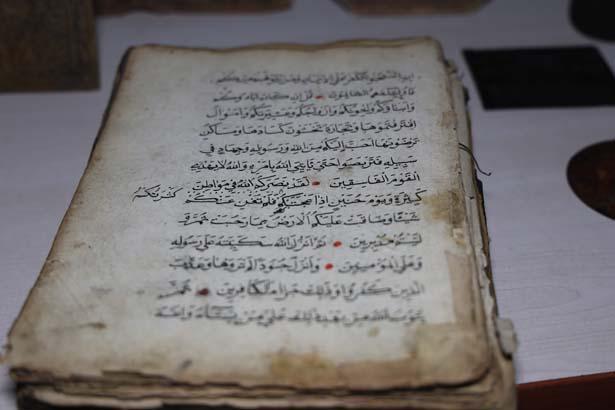 استحبوا الكفر على الايمان ومن يتولهم منكم
فاولئك هم الظالمون قل ان كان اباؤكم
وابناؤكم واخوانكم وازواجكم وعشيرتكم واموال
اقترفتموها وتجارة تخشون كسادها ومساكن
ترضونها احب اليكم من الله ورسوله وجهاد في
سبيله فتربصوا حتى ياتي الله بامره والله لا يهدي
القوم الفاسقين لقد نصركم الله في مواطن
كثرتكم
كثيرة ويوم حنين اذ اعجبتكم فلم تغن عنكم
شيئا وضاقت عليكم الارض بما رحبت ثم و
ليتم مدبرين ثم انزل الله سكينته على رسوله
وعلى المؤمنين وانزل جنودا لم تروها وعذب
الذين كفروا وذلك جزاء الكافرين ثم
يتوب الله من بعد ذلك على من يشاء والله